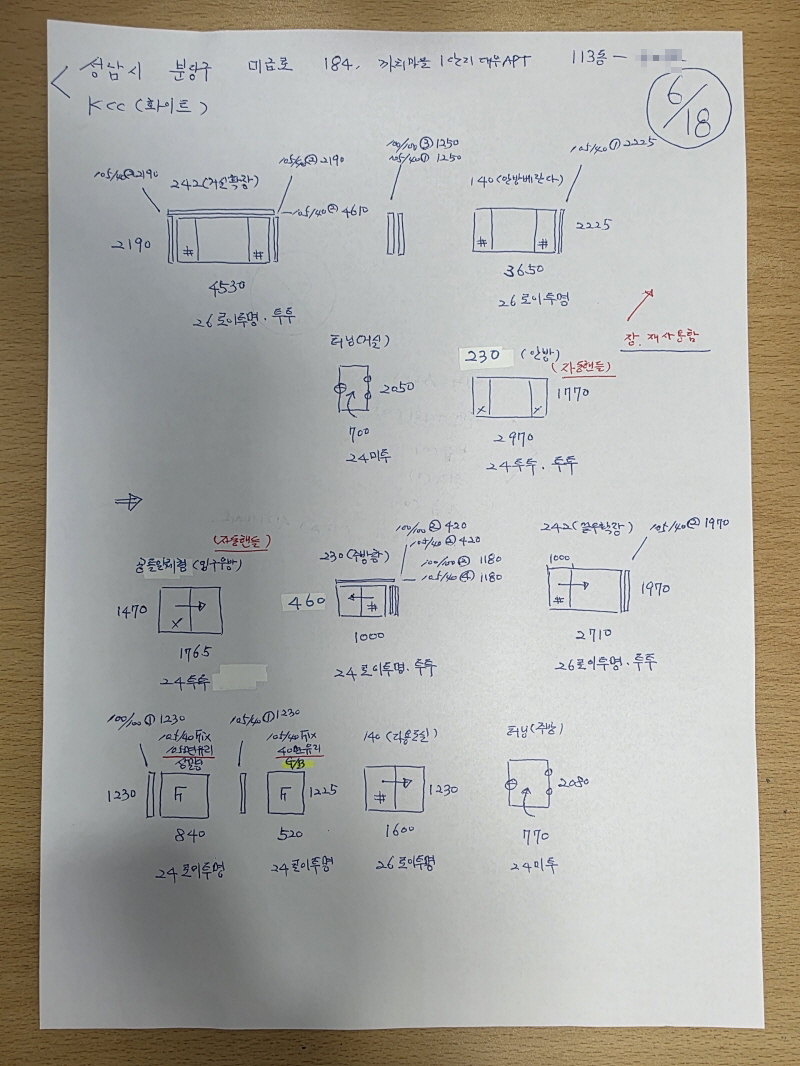 성남시 분당구 미금로 184, 까치마을 1단지 대우APT 113동 -
KCC (화이트)
6/18
105/40② 2190
242 (거실확장)
105/40② 2190
105/40② 4610
2190
4530
26 로이투명 · 투투
100/100③ 1250
105/40① 1250
140 (안방베란다)
105/40① 2225
2225
# #
3650
26 로이투명
장. 재사용함
터닝 (거실)
2050
700
24미투
230 (안방)
(자동핸들)
1770
x x
2970
24투투 · 투투
(자동핸들)
공틀일체형 (입구방)
1470
x
1765
24투투
230 (주방창)
100/100② 420
105/40② 420
100/100② 1180
105/40④ 1180
460
#
1000
24 로이투명 · 투투
242 (끝방확장)
105/40② 1970
1000
#
1970
2710
26로이투명 · 투투
100/100① 1230
105/40 Fix
105면유리
1230
F
840
24 로이투명
105/40① 1230
105/40 Fix
40면유리
F
1225
520
24로이투명
140 (다용도실)
#
1230
1600
26 로이투명
터닝 (주방)
2080
770
24미투